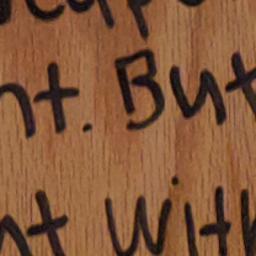 nt. But
nt with